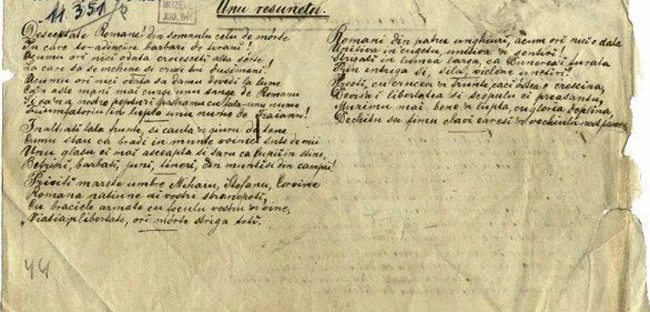 11.351
MUZEUL
Unu resunetu.
Desceptate Romane! din somnulu celu de mórte
In care te-adâncire barbari de tirani!
Acumu ori nici odata croiesceti alta sórte
La care sa se inchine si crudi tei dusimani!
Acumu ori nici odata sa damu dovedi la lume
Ca'n aste mani mai curge unu sange de Romanu
Si ca'n a nostre pepturi pastramu cu fala unu nume
Triumfatoriu in lupte unu nume de Traianu!
Inaltati lata frunte, si cauta'n giuru de tene
Cumu stau ca bradi in munte voinici sute de mii
Unu glasu ei mai ascepta si saru ca lupii in stâni,
Betrani, barbati, juni, tineri, din munti si din campii!
Priviti marete umbre Mihaiu, Stefanu, Corvine
Romana natiune ai vostri stranepoti,
Cu braciele armate cu foculu vostru'n vine,
Viatia'n libertate, ori mórte striga toti.
Romani din patru unghiuri, acum ori nici o data
Uniti-va in cugetu, uniti-va'n sentiri!
Strigati in lumea larga, ca Dunerea-i furata
Prin intriga si sila, viclene uneltiri.
Preoti, cu crucea'n frunte, caci óstea e crestina,
Devisa-i libertatea si scopulu ei preasantu,
Murimu mai bene'n lupta, cu gloria deplina,
Decâtu sa fimu sclavi earasi in vechiulu nost
44